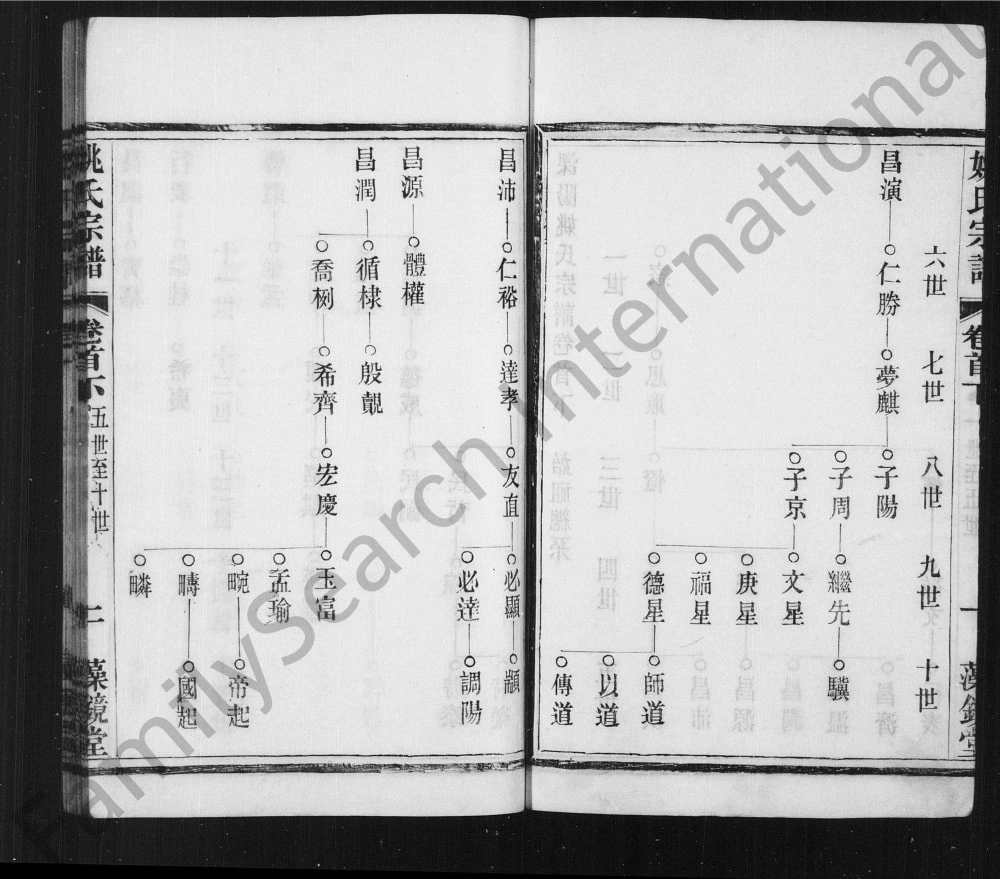 姚氏宗譜
卷首下
一
藻鏡堂
六世
七世
八世
九世
十世
昌演
仁勝
夢麒
子陽
子周
繼先
驥
子京
文星
庚星
福星
德星
師道
以道
傳道
昌沛
仁裕
達孝
友直
必顯
顓
必達
調陽
昌源
體權
昌潤
循棣
殷覲
喬栵
希齊
宏慶
玉富
孟瑜
畹
帝起
疇
國起
疄
姚氏宗譜
卷首下
五世至十世
二
藻鏡堂
FamilySearch International